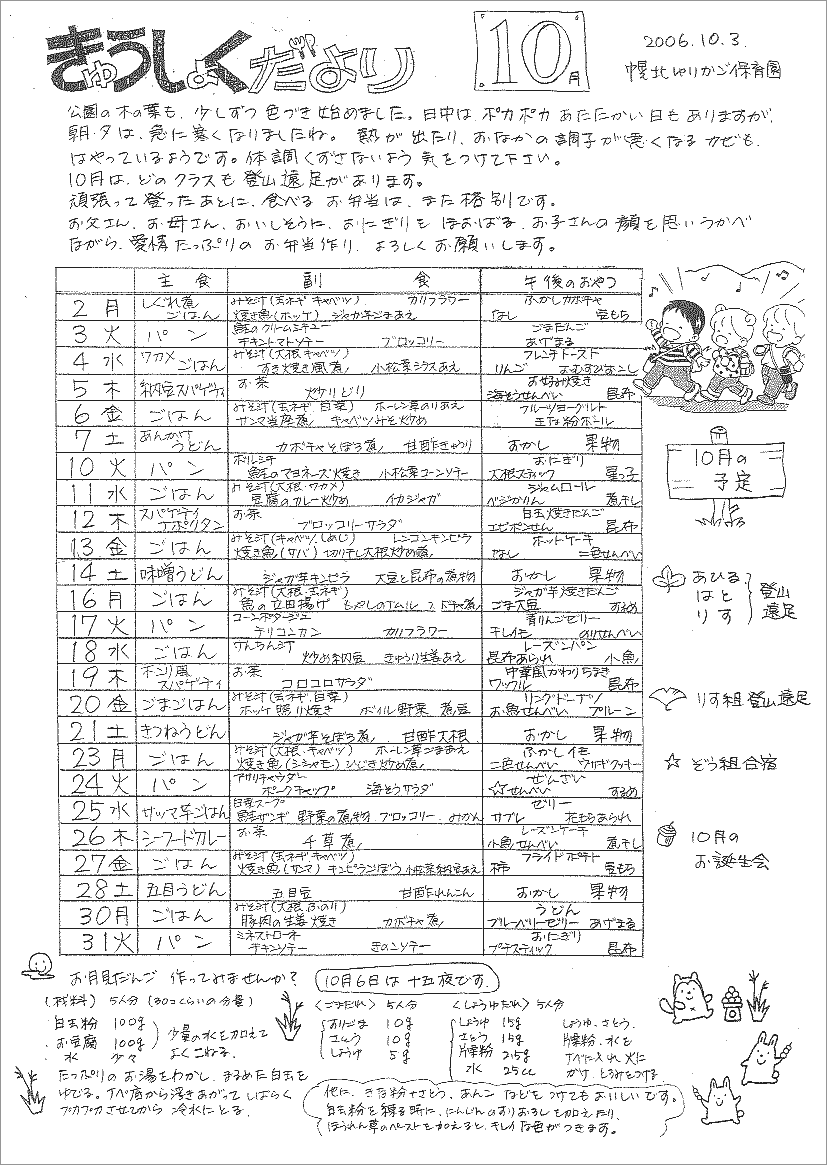 きゅうしょくだより
10月
2006.10.3.
幌北ゆりかご保育園
公園の木の葉も、少しずつ色づき始めました。日中は、ポカポカあたたかい日もありますが、
朝・夕は、急に寒くなりましたね。熱が出たり、おなかの調子が悪くなるカゼも、
はやっているようです。体調くずさないよう気をつけて下さい。
10月は、どのクラスも登山遠足があります。
頑張って登ったあとに、食べるお弁当は、また格別です。
お父さん、お母さん、おいしそうに、おにぎりをほおばる、お子さんの顔を思いうかべ
ながら、愛情たっぷりのお弁当作り、よろしくお願いします。
主食 副食 午後のおやつ
2月 しぐれ煮ごはん みそ汁(玉ネギ、キャベツ) カリフラワー ふかしカボチャ
焼き魚(ホッケ) ジャが芋ごまあえ なし 豆もち
3火 パン 鮭のクリームシチュー ごまだんご
チキントマトソテー ブロッコリー あげまる
4水 ワカメごはん みそ汁(大根、キャベツ) フレンチトースト
すき焼き風煮 小松菜シラスあえ りんご
5木 納豆スパゲティ お茶 炒りどり お好み焼き
海そうせんべい 昆布
6金 ごはん みそ汁(玉ネギ、白菜) ホーレン草のりあえ フルーツヨーグルト
サンマ当座煮 キャベツみそ炒め きな粉ボール
7土 あんかけうどん カボチャそぼろ煮 甘酢きゅうり おかし 果物
10火 パン ボルシチ おにぎり
鮭のマヨネーズ焼き 小松菜コーンソテー 大根スティック 星っ子
11水 ごはん みそ汁(大根、ワカメ) ジャムロール
豆腐のカレー炒め イカジャガ ベジかりん 煮干し
12木 スパゲティナポリタン お茶 ブロッコリーサラダ 白玉焼きだんご
エビポンせん 昆布
13金 ごはん みそ汁(キャベツ、しめじ) レンコンキンピラ ホットケーキ
焼き魚(サバ) 切り干し大根炒め煮 なし 二色せんべい
14土 味噌うどん ジャガ芋キンピラ 大豆と昆布の煮物 おかし 果物
16月 ごはん みそ汁(大根、玉ネギ) ジャガ芋焼きだんご
魚の立田揚げ もやしのナムル カボチャ煮 ごま大豆 するめ
17火 パン コーンポタージュ 青りんごゼリー
チリコンカン カリフラワー 干しイモ のりせんべい
18水 ごはん けんちん汁 レーズンパン
炒め納豆 きゅうり生姜あえ 昆布あられ 小魚
19木 スパゲティ お茶 コロコロサラダ 中華風かわりちまき
ワッフル 昆布
20金 ごまごはん みそ汁(玉ネギ、白菜) リングドーナツ
ホッケ照り焼き ボイル野菜 煮豆 お魚せんべい プルーン
21土 きつねうどん ジャガ芋そぼろ煮 甘酢大根 おかし 果物
23月 ごはん みそ汁(大根、キャベツ) ホーレン草ごまあえ ふかしイモ
焼き魚(シシャモ) ひじき炒め煮 二色せんべい ウサギクッキー
24火 パン アサリチャウダー ぜんざい
ポークチャップ 海そうサラダ ☆せんべい するめ
25水 サツマ芋ごはん 白菜スープ ゼリー
鮭ザンギ 野菜の煮物 ブロッコリー みかん サブレ 花もちあられ
26木 シーフードカレー お茶 千草煮 レーズンケーキ
小魚せんべい 煮干し
27金 ごはん みそ汁(玉ネギ、キャベツ) フライドポテト
焼き魚(サンマ) キンピラごぼう 小松菜納豆あえ 柿 豆もち
28土 五目うどん 五目豆 甘酢れんこん おかし 果物
30月 ごはん みそ汁(大根、ふのり) うどん
豚肉の生姜焼き カボチャ煮 ブルーベリーゼリー あげまる
31火 パン ミネストローネ おにぎり
チキンソテー きのこソテー プチスティック 昆布
10月の
予定
あひる
はと
りす
登山
遠足
りす組登山遠足
☆ ぞう組合宿
10月の
お誕生会
お月見だんご 作ってみませんか?
10月6日は十五夜です。
(材料) 5人分(30コくらいの分量)
白玉粉 100g
お豆腐 100g
水 少々
少量の水を加えて
よくこねる。
たっぷりのお湯をわかし、まるめた白玉を
ゆでる。ナベ底から浮きあがってしばらく
プカプカさせてから冷水にとる。
<ごまだれ> 5人分
すりごま 10g
さとう 10g
しょうゆ 5g
<しょうゆだれ> 5人分
しょうゆ 15g
さとう 15g
片栗粉 2.5g
水 25cc
しょうゆ、さとう、
片栗粉、水を
ナベに入れ火に
かけ、とろみをつける
他に、きな粉+さとう、あんこなどをつけてもおいしいです。
白玉粉を練る時に、にんじんのすりおろしを加えたり、
ほうれん草のペーストを加えると、キレイな色がつきます。